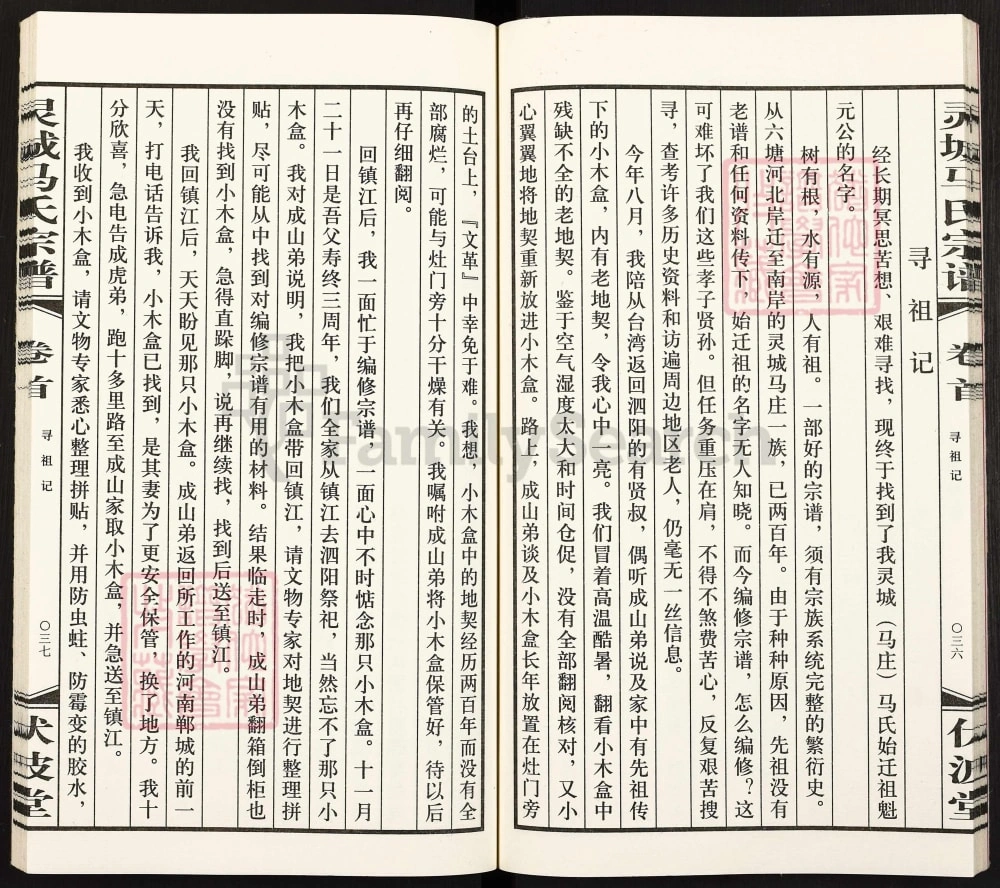 灵城马氏宗谱
卷首
寻祖记
〇三六
伏波堂
寻祖记
经长期冥思苦想、艰难寻找，现终于找到了我灵城（马庄）马氏始迁祖魁
元公的名字。
树有根，水有源，人有祖。一部好的宗谱，须有宗族系统完整的繁衍史。
从六塘河北岸迁至南岸的灵城马庄一族，已两百年。由于种种原因，先祖没有
老谱和任何资料传下，始迁祖的名字无人知晓。而今编修宗谱，怎么编修？这
可难坏了我们这些孝子贤孙。但任务重压在肩，不得不煞费苦心，反复艰苦搜
寻，查考许多历史资料和访遍周边地区老人，仍毫无一丝信息。
今年八月，我陪从台湾返回泗阳的有贤叔，偶听成山弟说及家中有先祖传
下的小木盒，内有老地契，令我心中一亮。我们冒着高温酷暑，翻看小木盒中
残缺不全的老地契。鉴于空气湿度太大和时间仓促，没有全部翻阅核对，又小
心翼翼地将地契重新放进小木盒。路上，成山弟谈及小木盒长年放置在灶门旁
的土台上，『文革』中幸免于难。我想，小木盒中的地契经历两百年而没有全
部腐烂，可能与灶门旁十分干燥有关。我嘱咐成山弟将小木盒保管好，待以后
再仔细翻阅。
回镇江后，我一面忙于编修宗谱，一面心中不时惦念那只小木盒。十一月
二十一日是吾父寿终三周年，我们全家从镇江去泗阳祭祀，当然忘不了那只小
木盒。我对成山弟说明，我把小木盒带回镇江，请文物专家对地契进行整理拼
贴，尽可能从中找到对编修宗谱有用的材料。结果临走时，成山弟翻箱倒柜也
没有找到小木盒，急得直跺脚，说再继续找，找到后送至镇江。
我回镇江后，天天盼见那只小木盒。成山弟返回所工作的河南郸城的前一
天，打电话告诉我，小木盒已找到，是其妻为了更安全保管，换了地方。我十
分欣喜，急电告成虎弟，跑十多里路至成山家取小木盒，并急送至镇江。
我收到小木盒，请文物专家悉心整理拼贴，并用防虫蛀、防霉变的胶水，
灵城马氏宗谱
卷首
寻祖记
〇三七
伏波堂
FamilySearch